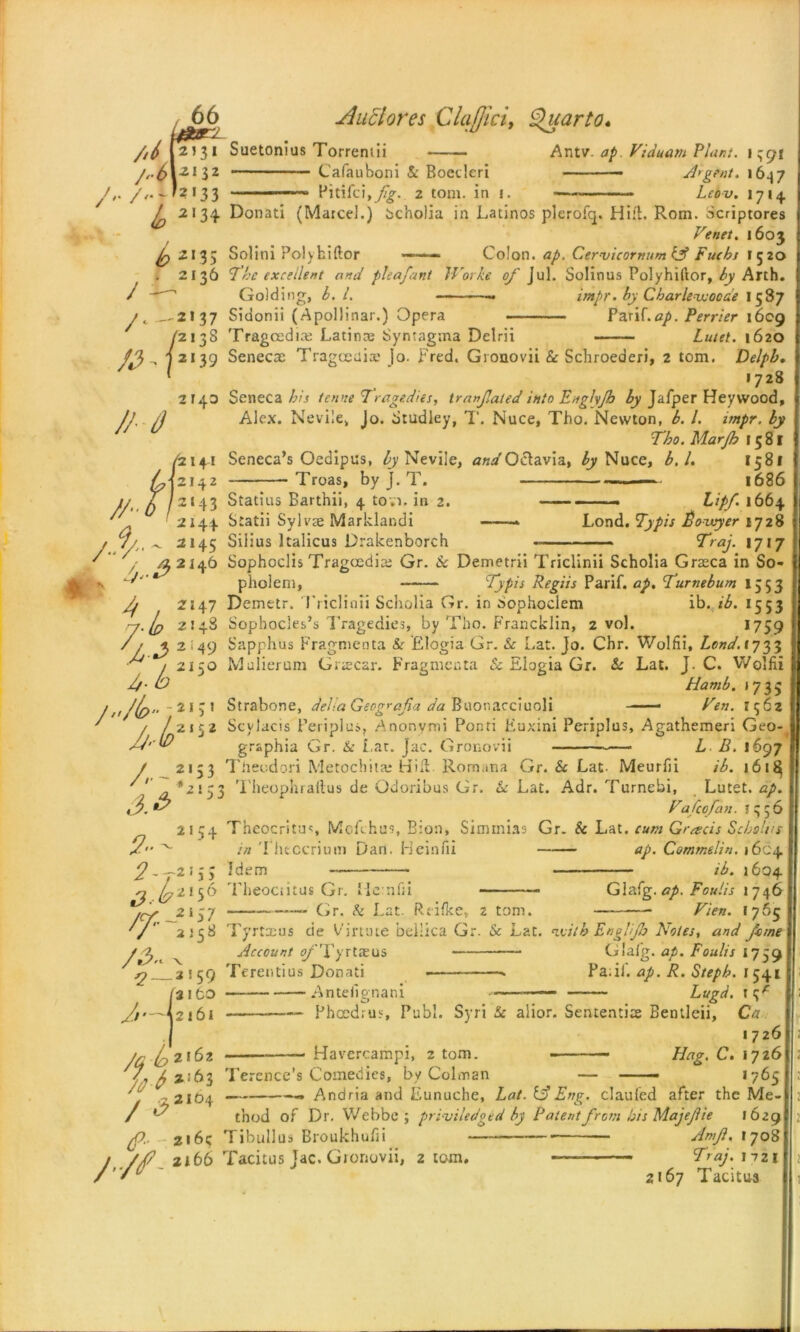 66 Auctores Claſſici, Quarto.
2131 Suetonius Torrentii —— Antv. ap. Viduam Plant. 1591
2132 ——— Caſauboni & Boecleri —— Argent. 1647
2133 ——— Pitiſci, fig. 2 tom. in 1. —— Leov. 1714
2134 Donati (Marcel.) Scholia in Latinos pleroſq. Hiſt. Rom. Scriptores
Venet. 1603
2135 Solini Polyhiſtor —— Colon. ap. Cervicornum & Fuchs 1520
2136 The excellent and pleaſant Worke of Jul. Solinus Polyhiſtor, by Arth.
Golding, b. l. —— impr. by Charlewoode 1587
2137 Sidonii (Apollinar.) Opera —— Pariſ. ap. Perrier 1609
2138 Tragœdiæ Latinæ Syntagma Delrii —— Lutet. 1620
2139 Senecæ Tragœdiæ Jo. Fred. Gronovii & Schroederi, 2 tom. Delph.
1728
2140 Seneca his tenne Tragedies, tranſlated into Englyſh by Jaſper Heywood,
Alex. Nevile, Jo. Studley, T. Nuce, Tho. Newton, b. l. impr. by
Tho. Marſh 1581
2141 Seneca's Oedipus, by Nevile, and Octavia, by Nuce, b. l. 1581
2142 ——— Troas, by J. T. ——— 1686
2143 Statius Barthii, 4 tom. in 2. —— Lipſ. 1664
2144 Statii Sylvæ Marklandi —— Lond. Typis Bowyer 1728
2145 Silius Italicus Drakenborch —— Traj. 1717
2146 Sophoclis Tragœdiæ Gr. & Demetrii Triclinii Scholia Græca in So-
pholem, —— Typis Regiis Pariſ. ap. Turnebum 1553
2147 Demetr. Triclinii Scholia Gr. in Sophoclem ib. ib. 1553
2148 Sophocles's Tragedies, by Tho. Francklin, 2 vol. 1759
2149 Sapphus Fragmenta & Elogia Gr. & Lat. Jo. Chr. Wolfii, Lond. 1733
2150 Mulierum Græcar. Fragmenta & Elogia Gr. & Lat. J. C. Wolfii
Hamb. 1735
2151 Strabone, della Geografia da Buonacciuoli —— Ven. 1562
2152 Scylacis Periplus, Anonymi Ponti Euxini Periplus, Agathemeri Geo-
graphia Gr. & Lat. Jac. Gronovii —— L. B. 1697
2153 Theodori Metochitæ Hiſt. Romana Gr. & Lat. Meurſii ib. 1618
*2153 Theophraſtus de Odoribus Gr. & Lat. Adr. Turnebi, Lutet. ap.
Vaſcoſan. 1556
2154 Theocritus, Moſchus, Bion, Simmias Gr. & Lat. cum Græcis Scholiis
in Theocritum Dan. Heinſii —— ap. Commelin. 1604
2155 Idem —— —— ib. 1604
2156 Theocritus Gr. Heinſii —— Glaſg. ap. Foulis 1746
2157 ——— Gr. & Lat. Reiſke, 2 tom. —— Vien. 1765
2158 Tyrtæus de Virtute bellica Gr. & Lat. with Engliſh Notes, and ſome
Account of Tyrtæus —— Glaſg. ap. Foulis 1759
2159 Terentius Donati —— Pariſ. ap. R. Steph. 1541
2160 ——— Anteſignani —— Lugd.
2161 ——— Phœdrus, Publ. Syri & alior. Sententiæ Bentleii, Ca
1726
2162 ——— Havercampi, 2 tom. —— Hag. C. 1726
2163 Terence's Comedies, by Colman —— 1765
2164 ——— Andria and Eunuche, Lat. & Eng. clauſed after the Me-
thod of Dr. Webbe; priviledged by Patent from his Majeſtie 1629
2165 Tibullus Broukhuſii —— Amſt. 1708
2166 Tacitus Jac. Gronovii, 2 tom. —— Traj. 1721
2167 Tacitus